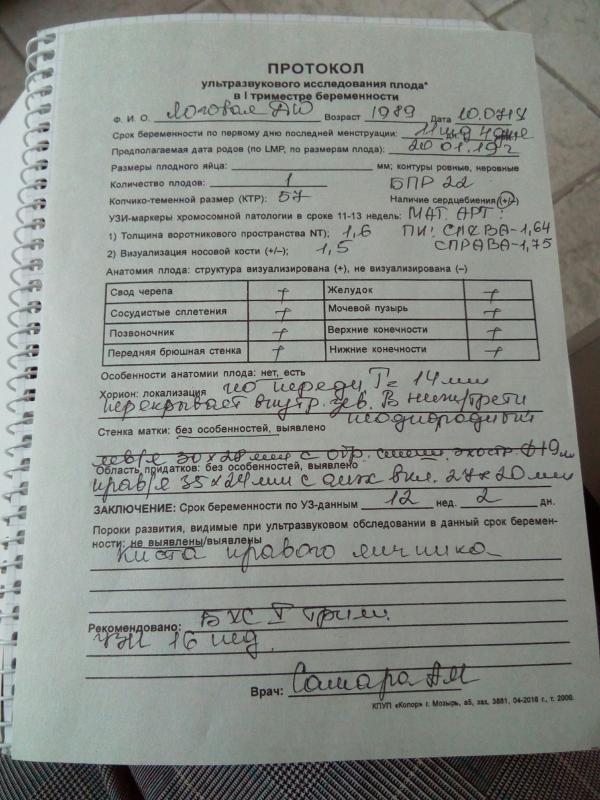 ПРОТОКОЛ
ультразвукового исследования плода*
в I триместре беременности
Ф. И. О. Возраст 1989 Дата 10.07.18
Срок беременности по первому дню последней менструации: 11 нед 4 дне
Предполагаемая дата родов (по LMP, по размерам плода): 20 01.19 г
Размеры плодного яйца: мм; контуры ровные, неровные
Количество плодов: 1 БПР 22
Копчико-теменной размер (КТР): 57 Наличие сердцебиения (+/-)
УЗИ-маркеры хромосомной патологии в сроке 11-13 недель: МАТ. АРТ:
1) Толщина воротникового пространства NT); 1,6 ПИ: СЛЕВА-1,64
2) Визуализация носовой кости (+/–); 1,5 СПРАВА-1,75
Анатомия плода: структура визуализирована (+), не визуализирована (–)
Свод черепа + Желудок +
Сосудистые сплетения + Мочевой пузырь +
Позвоночник + Верхние конечности +
Передняя брюшная стенка + Нижние конечности +
Особенности анатомии плода: нет, есть
Хорион: локализация по переди T= 14 мм
перекрывает внутр. зев. В нижн/трети
неоднородный
Стенка матки: без особенностей, выявлено
лев/я 30×28 мм с отр.
Область придатков: без особенностей, выявлено
прав/я 35×24 мм с жидк вкл. 27×20 мм
ЗАКЛЮЧЕНИЕ: Срок беременности по УЗ-данным 12 нед. 2 дн.
Пороки развития, видимые при ультразвуковом обследовании в данный срок беремен-
ности: не выявлены/выявлены
Киста правого яичника
Рекомендовано: БХС I трим.
УЗИ 16 нед.
Врач: Самара АМ
КПУП «Колор» г. Мозырь, а5, зак. 3881, 04-2016 г., т. 2000.